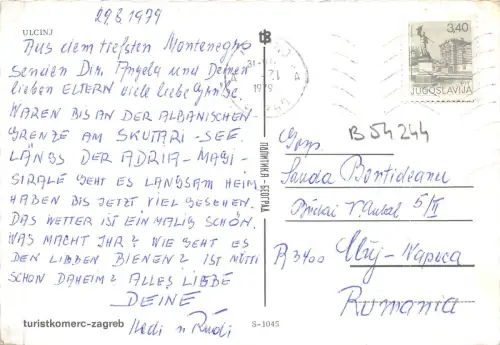 29.8.1979
ULCINJ
Aus dem tiefsten Montenegro
senden Dir, Angela und Deinen
lieben ELTERN viele liebe Grüße.
WAREN BIS AN DER ALBANISCHEN
GRENZE AM SKUTARI - SEE.
LÄNGS DER ADRIA - MAGI -
STRALE GEHT ES LANGSAM HEIM
HABEN BIS JETZT VIEL GESEHEN.
DAS WETTER IST EINMALIG SCHÖN.
WAS MACHT IHR? WIE GEHT ES
DEN LIEBEN BIENEN? IST MUTTI
SCHON DAHEIM? ALLES LIEBE
DEINE
Hedi u Rudi
turistkomerc-zagreb
S-1045
ПОЛИТИКА - БЕОГРАД
3,40
JUGOSLAVIJA
1979
B 54244
Sanda
5/II
R 3400 Cluj - Napoca
Rumania